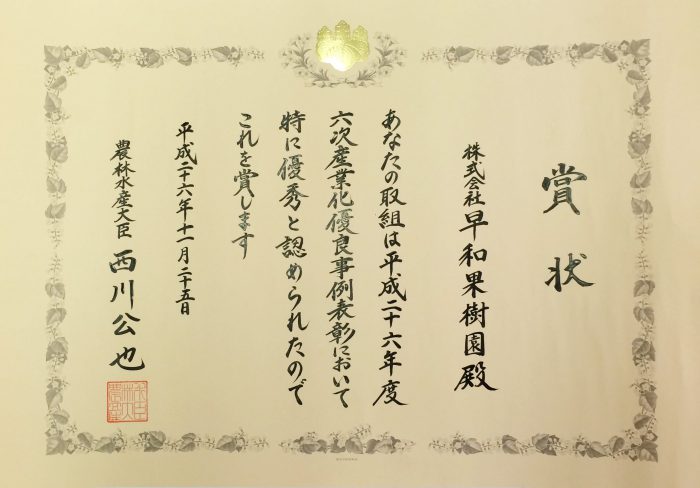 賞状
株式会社早和果樹園殿
あなたの取組は平成二十六年度
六次産業化優良事例表彰において
特に優秀と認められたので
これを賞します
平成二十六年十一月二十五日
農林水産大臣 西川公也